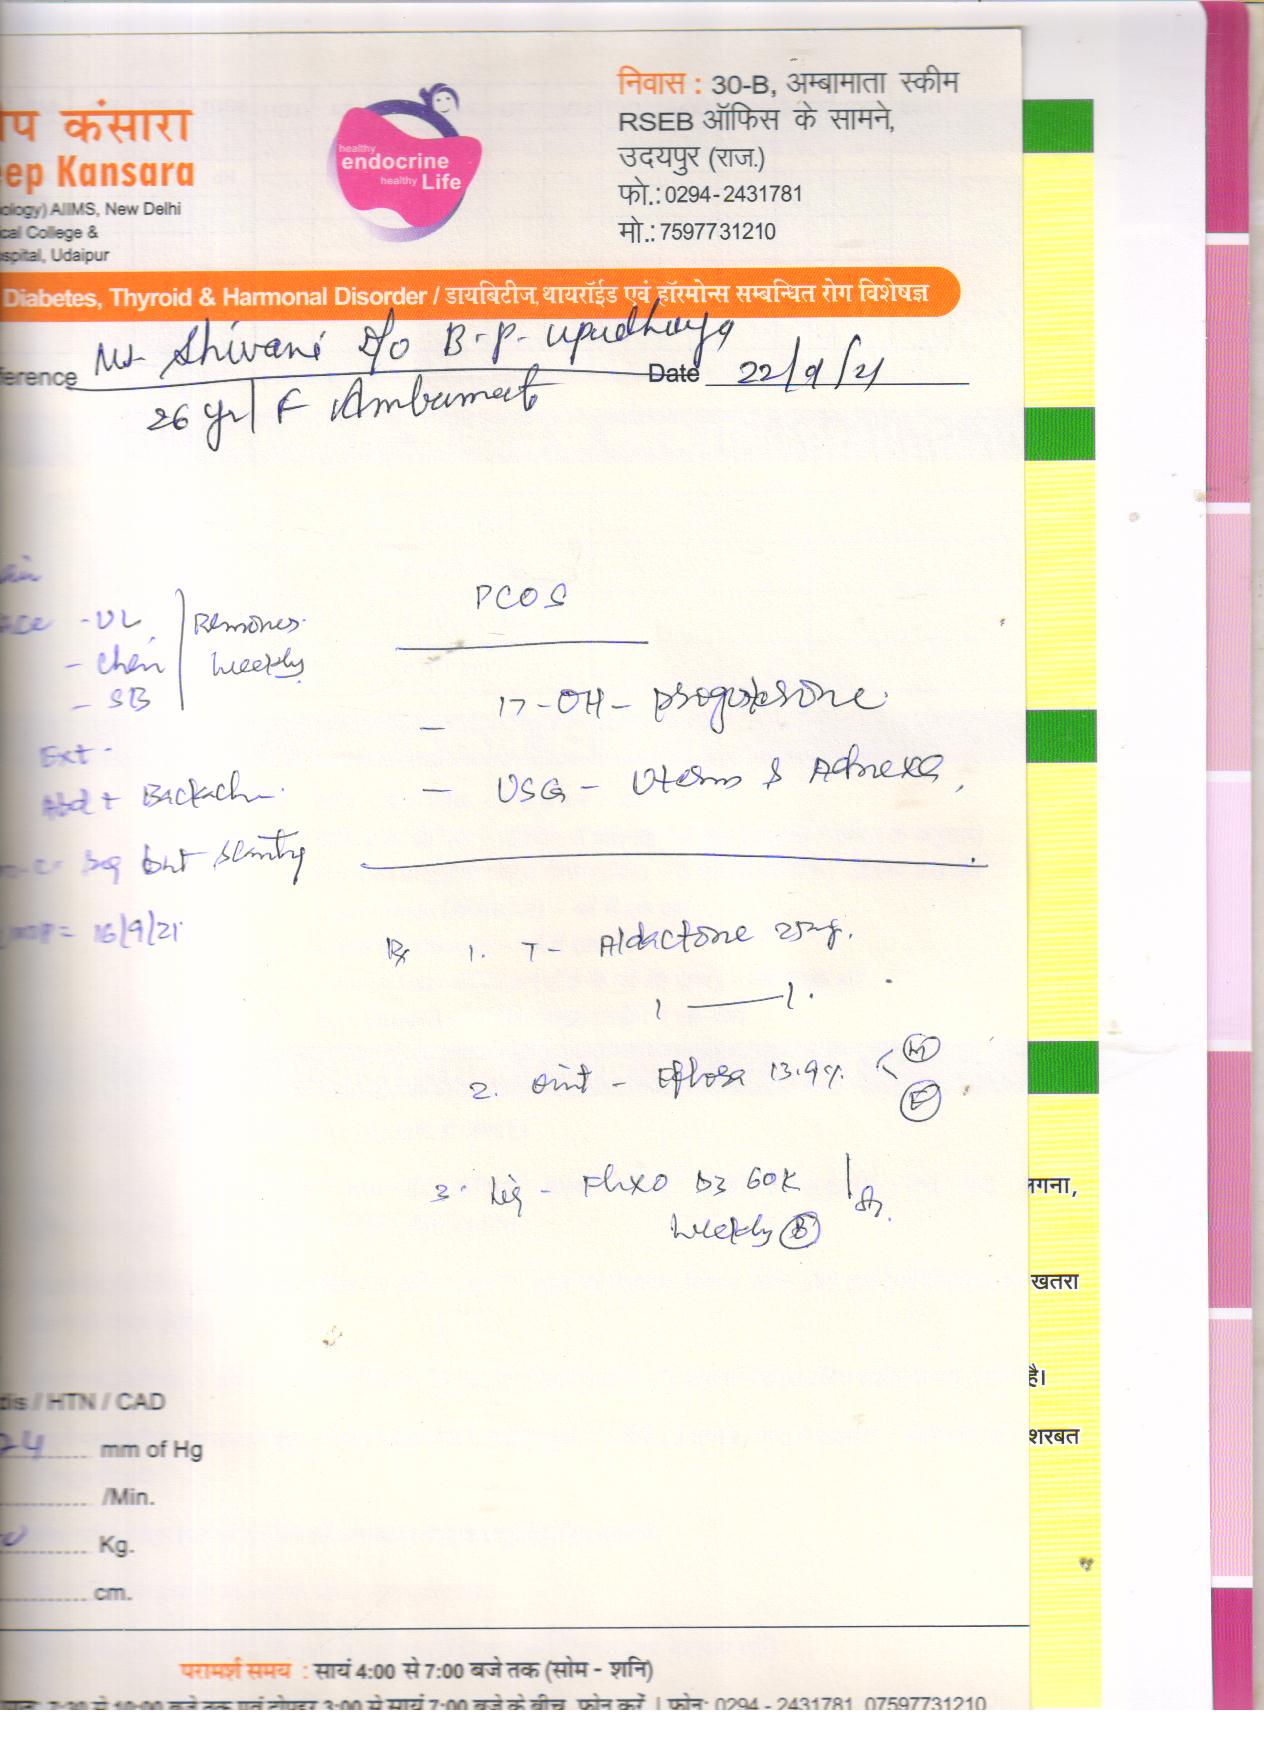 निवास : 30-B, अम्बामाता स्कीम
RSEB ऑफिस के सामने,
उदयपुर (राज.)
फो.: 0294-2431781
मो.: 7597731210
प कंसारा
eep Kansara
ology) AIIMS, New Delhi
cal College &
spital, Udaipur
healthy
endocrine
healthy Life
Diabetes, Thyroid & Harmonal Disorder / डायबिटीज, थायरॉईड एवं हॉरमोन्स सम्बन्धित रोग विशेषज्ञ
ference Ms Shivani D/o B.P. Upadhaya
Date 22/9/21
26 yr/F Ambamat
PCOS
ace - UL
- Chin
- SB
Removes
weekly
- 17-OH-progesterone
Ext -
Abd + Back
- USG - Uterus & Adnexa,
but scanty
LMP = 16/9/21
Rx 1. T- Aldactone 25mg.
1 — 1.
2. Oint - Eflora 13.9%. < M
E
3. Liq - D3 60K
weekly
dis / HTN / CAD
24 mm of Hg
/Min.
Kg.
cm.
लगना,
खतरा
है।
शरबत
परामर्श समय : सायं 4:00 से 7:00 बजे तक (सोम - शनि)
7:30 से 10:00 बजे तक एवं दोपहर 3:00 से सायं 7:00 बजे के बीच फोन करें । फोन: 0294 - 2431781, 07597731210